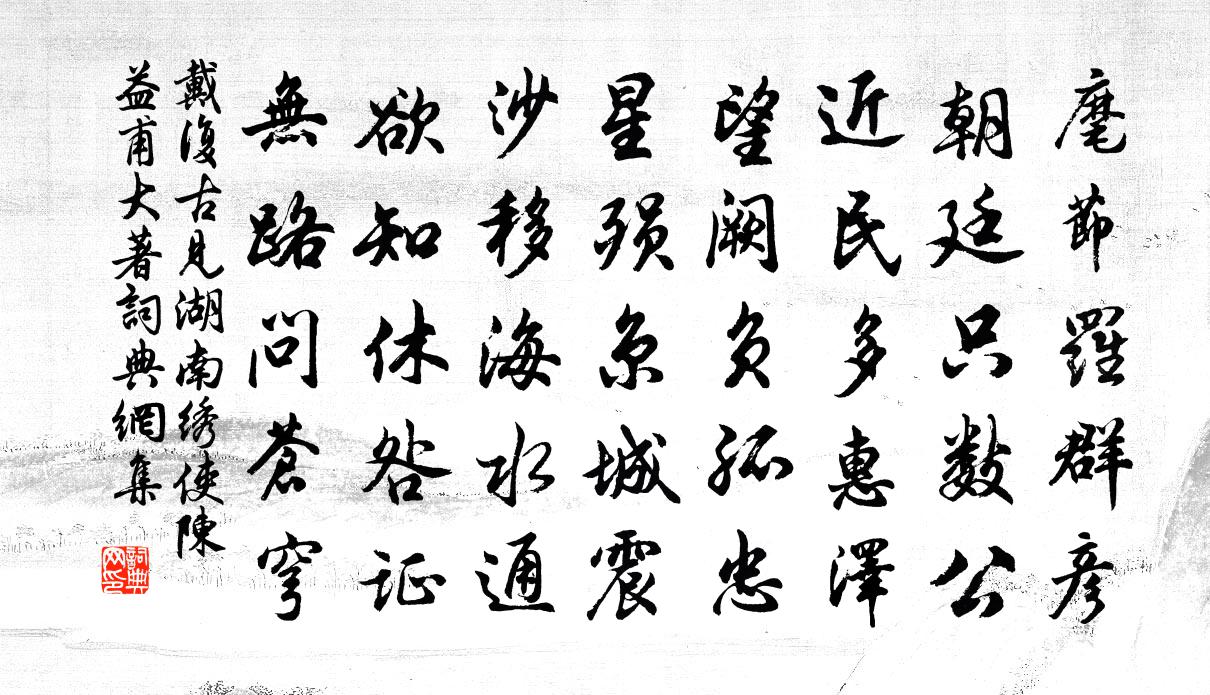 麾節羅群彦
朝廷只數公
近民多惠澤
望闕負孤忠
星殞京城震
沙移海水通
欲知休咎証
無路問蒼穹
戴復古見湖南绣使陳
益甫大著詞典網集
詞典网印